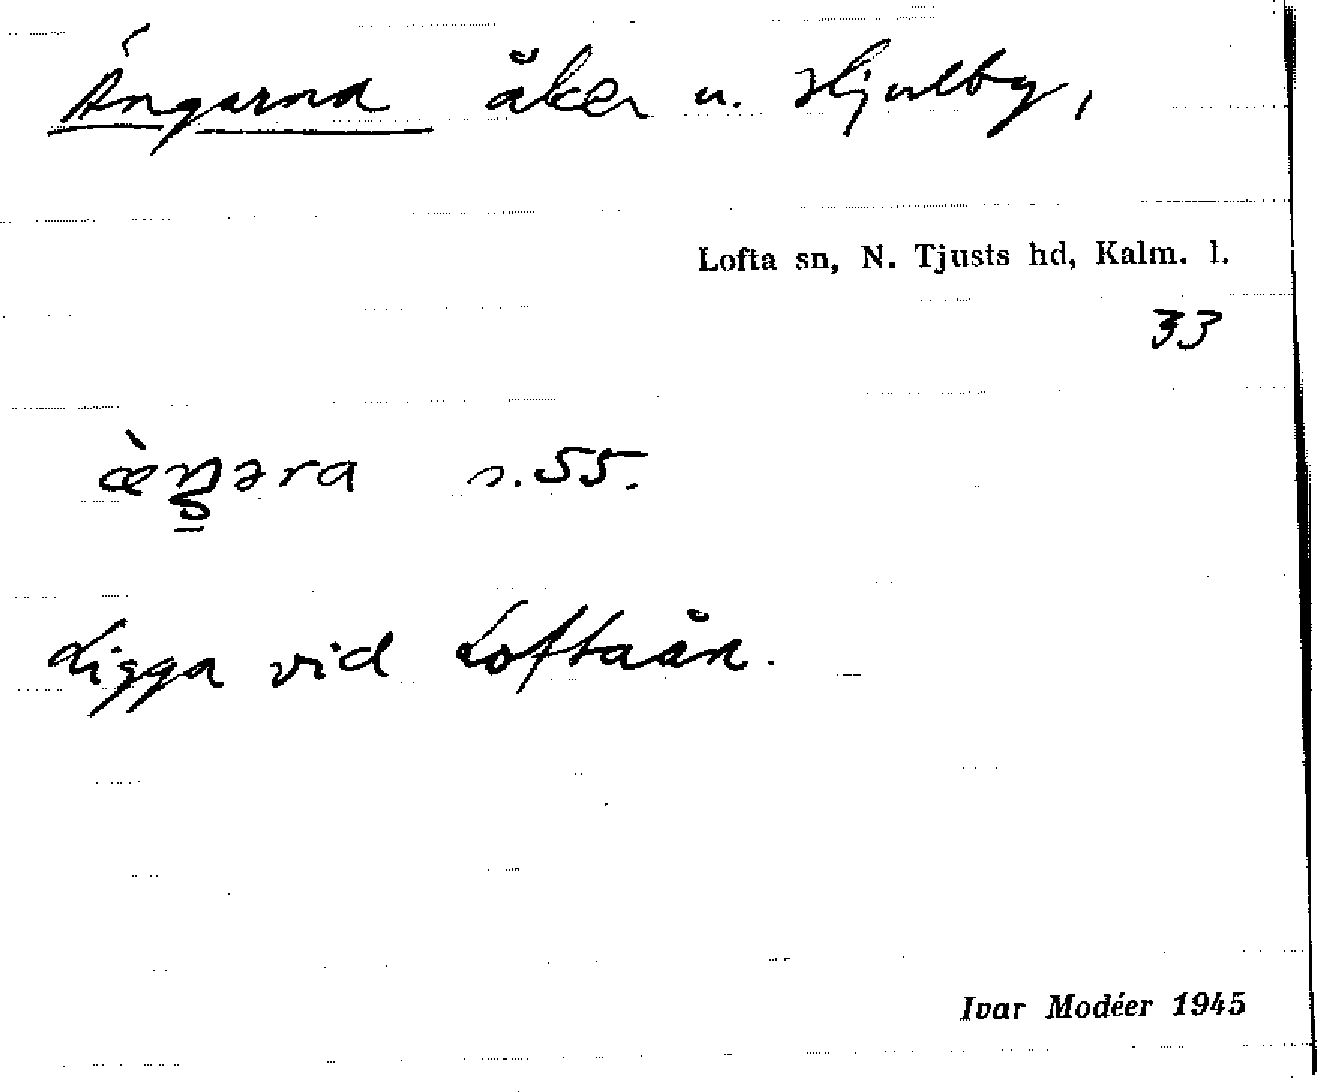 Ängarna åker u. Hjulby,
Lofta sn, N. Tjusts hd, Kalm. l.
33
æ̀ŋəra s. 55.
Ligga vid Loftaån.
Ivar Modéer 1945